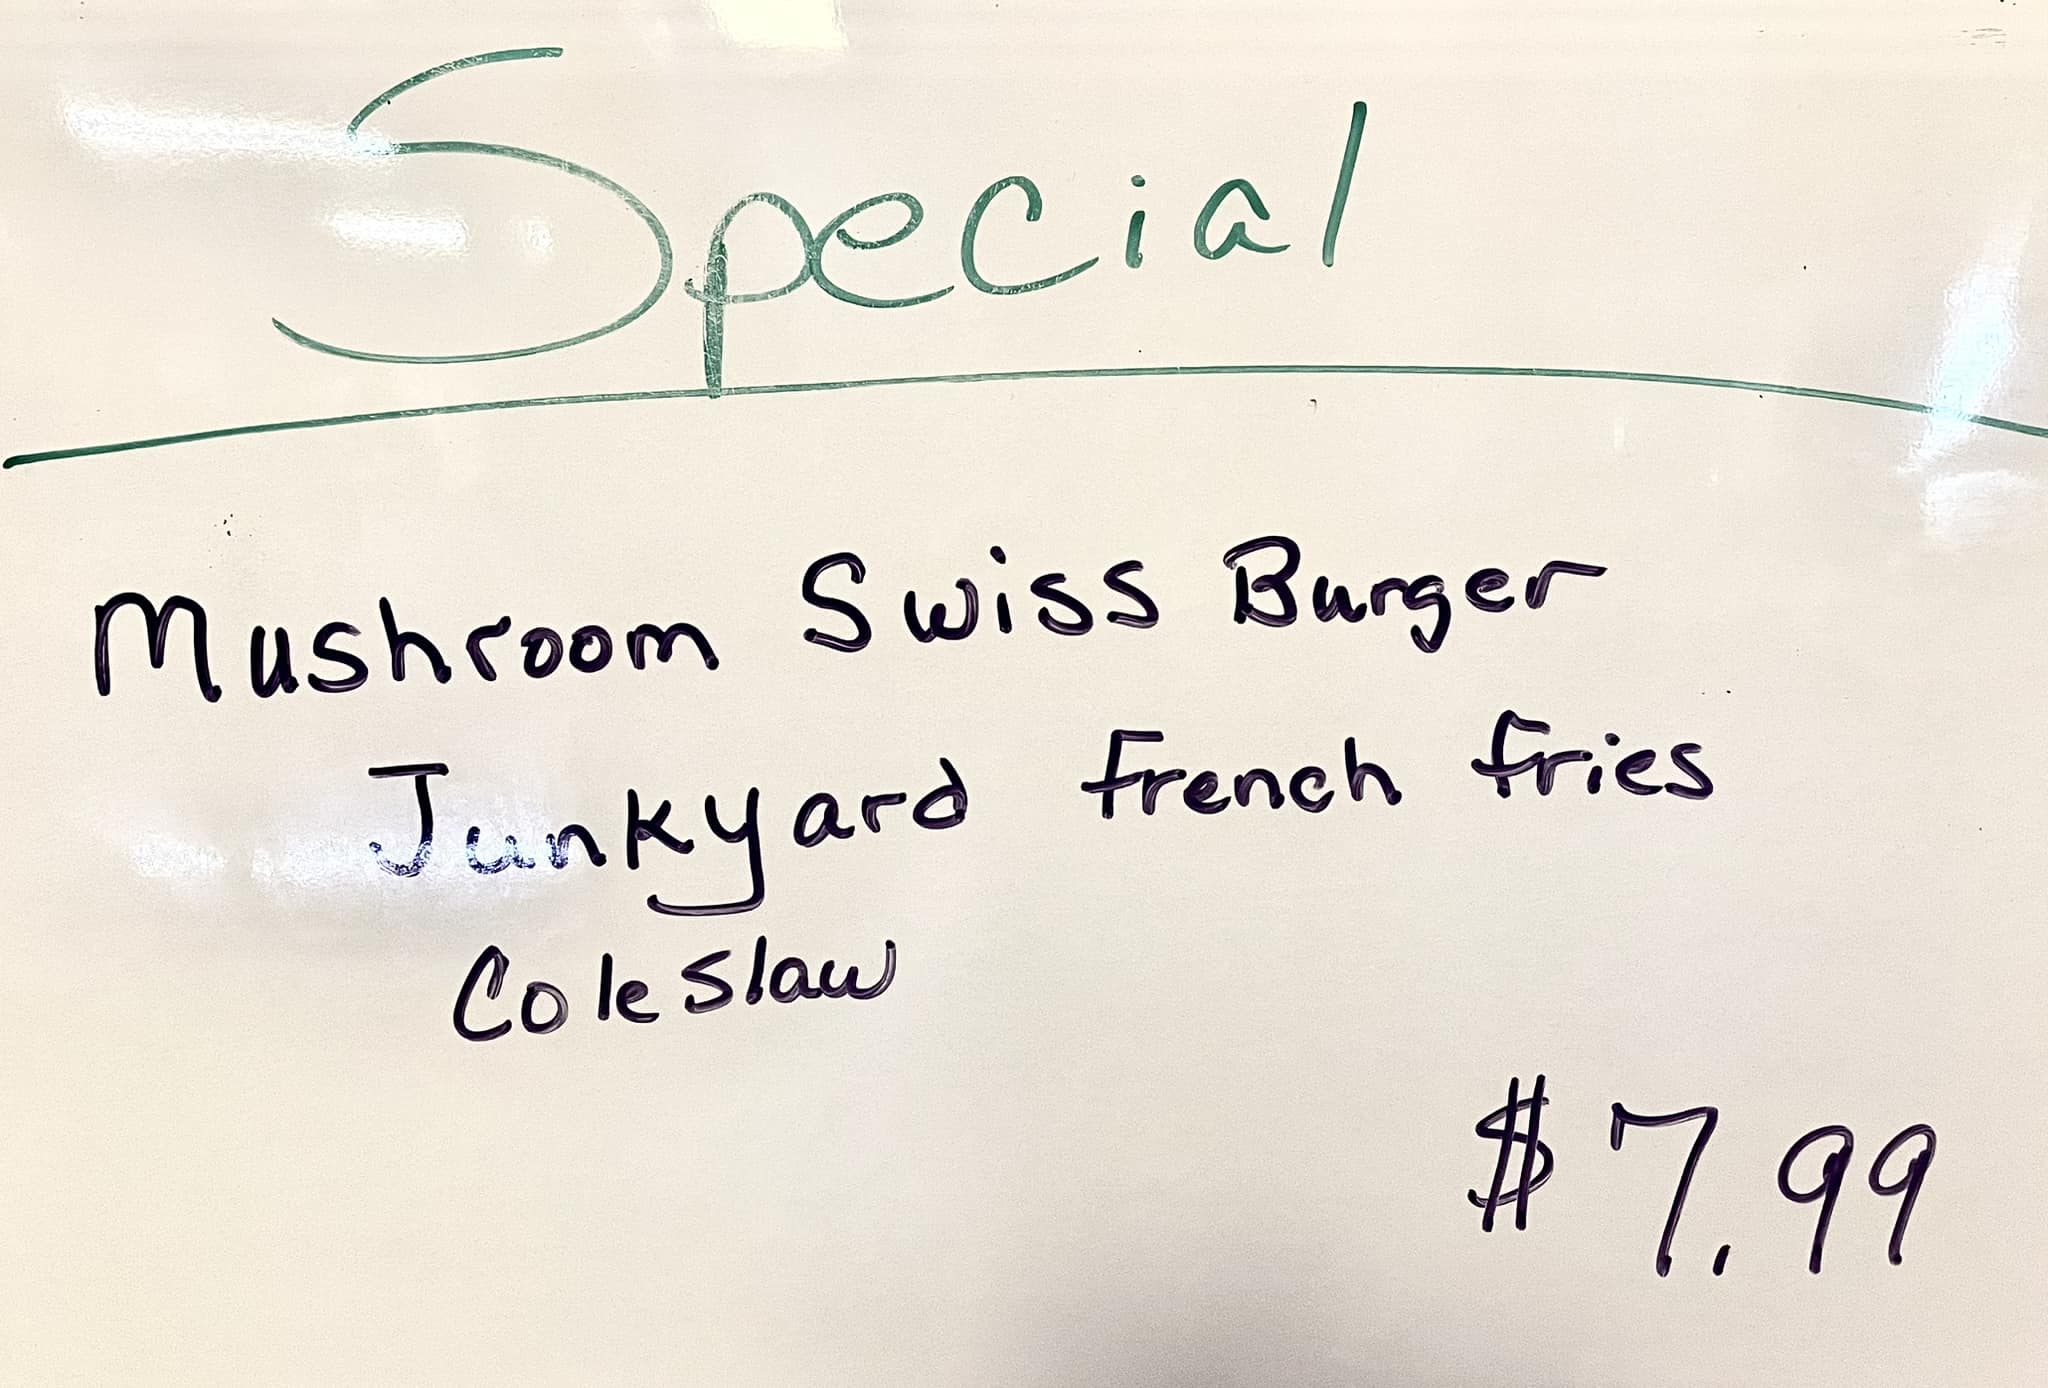 Special
Mushroom Swiss Burger
Junkyard French fries
Coleslaw
$7.99